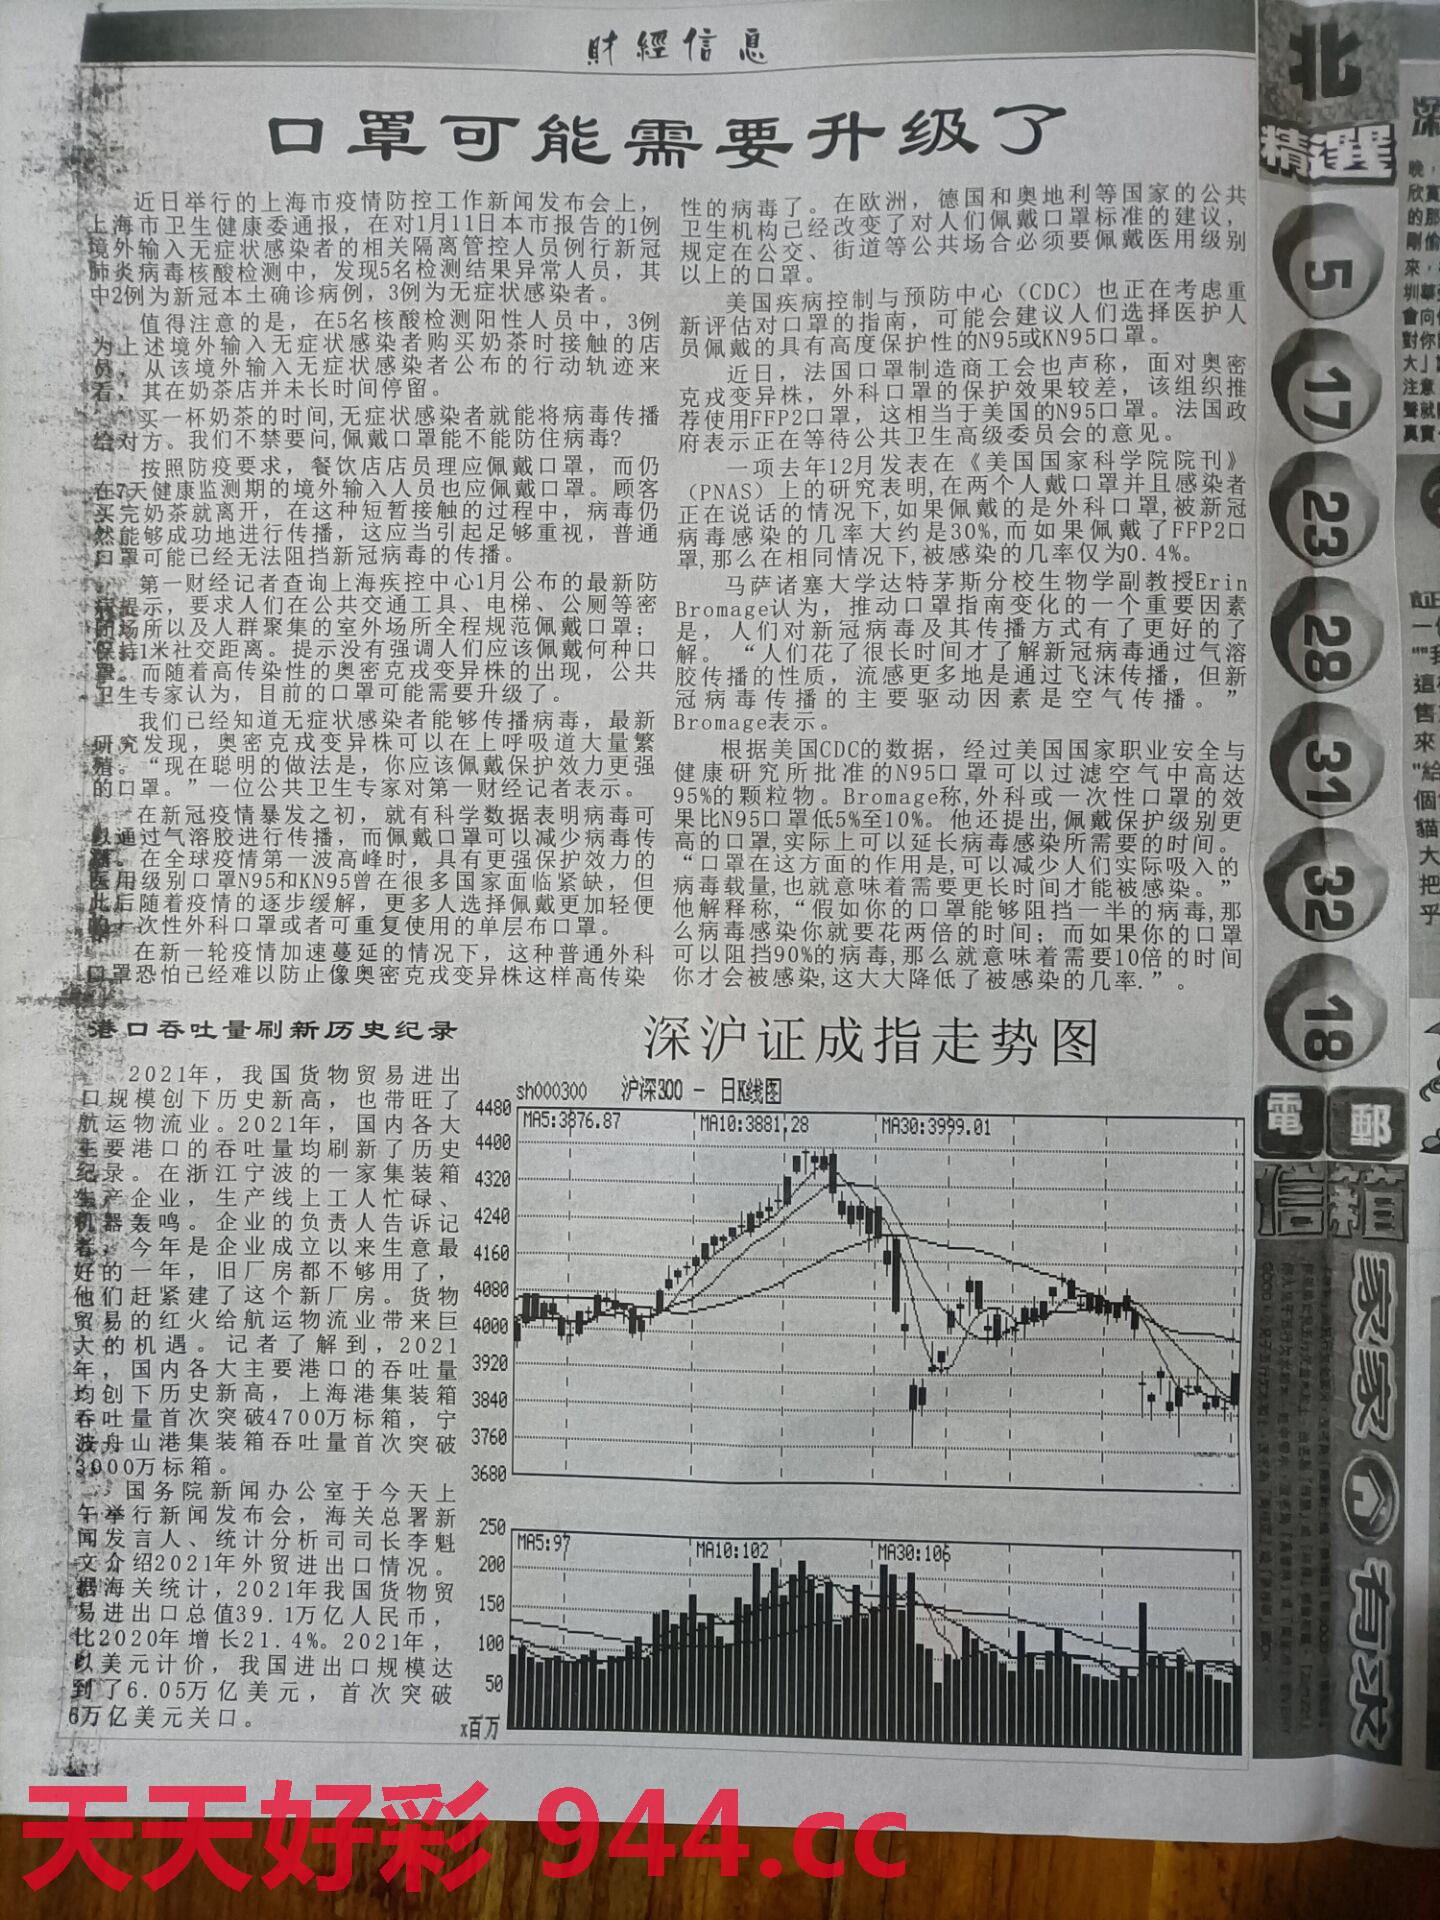 財經信息
口罩可能需要升级了
近日举行的上海市疫情防控工作新闻发布会上，
上海市卫生健康委通报，在对1月11日本市报告的1例
境外输入无症状感染者的相关隔离管控人员例行新冠
肺炎病毒核酸检测中，发现5名检测结果异常人员，其
中2例为新冠本土确诊病例，3例为无症状感染者。
值得注意的是，在5名核酸检测阳性人员中，3例
为上述境外输入无症状感染者购买奶茶时接触的店
员，从该境外输入无症状感染者公布的行动轨迹来
看，其在奶茶店并未长时间停留。
买一杯奶茶的时间,无症状感染者就能将病毒传播
给对方。我们不禁要问,佩戴口罩能不能防住病毒?
按照防疫要求，餐饮店店员理应佩戴口罩，而仍
在7天健康监测期的境外输入人员也应佩戴口罩。顾客
买完奶茶就离开，在这种短暂接触的过程中，病毒仍
然能够成功地进行传播，这应当引起足够重视，普通
口罩可能已经无法阻挡新冠病毒的传播。
第一财经记者查询上海疾控中心1月公布的最新防
病提示，要求人们在公共交通工具、电梯、公厕等密
闭场所以及人群聚集的室外场所全程规范佩戴口罩；
保持1米社交距离。提示没有强调人们应该佩戴何种口
罩。而随着高传染性的奥密克戎变异株的出现，公共
卫生专家认为，目前的口罩可能需要升级了。
我们已经知道无症状感染者能够传播病毒，最新
研究发现，奥密克戎变异株可以在上呼吸道大量繁
殖。“现在聪明的做法是，你应该佩戴保护效力更强
的口罩。”一位公共卫生专家对第一财经记者表示。
在新冠疫情暴发之初，就有科学数据表明病毒可
以通过气溶胶进行传播，而佩戴口罩可以减少病毒传
播。在全球疫情第一波高峰时，具有更强保护效力的
医用级别口罩N95和KN95曾在很多国家面临紧缺，但
此后随着疫情的逐步缓解，更多人选择佩戴更加轻便
的一次性外科口罩或者可重复使用的单层布口罩。
在新一轮疫情加速蔓延的情况下，这种普通外科
口罩恐怕已经难以防止像奥密克戎变异株这样高传染
性的病毒了。在欧洲，德国和奥地利等国家的公共
卫生机构已经改变了对人们佩戴口罩标准的建议，
规定在公交、街道等公共场合必须要佩戴医用级别
以上的口罩。
美国疾病控制与预防中心（CDC）也正在考虑重
新评估对口罩的指南，可能会建议人们选择医护人
员佩戴的具有高度保护性的N95或KN95口罩。
近日，法国口罩制造商工会也声称，面对奥密
克戎变异株，外科口罩的保护效果较差，该组织推
荐使用FFP2口罩，这相当于美国的N95口罩。法国政
府表示正在等待公共卫生高级委员会的意见。
一项去年12月发表在《美国国家科学院院刊》
（PNAS）上的研究表明,在两个人戴口罩并且感染者
正在说话的情况下,如果佩戴的是外科口罩,被新冠
病毒感染的几率大约是30%,而如果佩戴了FFP2口
罩,那么在相同情况下,被感染的几率仅为0.4%。
马萨诸塞大学达特茅斯分校生物学副教授Erin
Bromage认为，推动口罩指南变化的一个重要因素
是，人们对新冠病毒及其传播方式有了更好的了
解。“人们花了很长时间才了解新冠病毒通过气溶
胶传播的性质，流感更多地是通过飞沫传播，但新
冠病毒传播的主要驱动因素是空气传播。”
Bromage表示。
根据美国CDC的数据，经过美国国家职业安全与
健康研究所批准的N95口罩可以过滤空气中高达
95%的颗粒物。Bromage称,外科或一次性口罩的效
果比N95口罩低5%至10%。他还提出,佩戴保护级别更
高的口罩,实际上可以延长病毒感染所需要的时间。
“口罩在这方面的作用是,可以减少人们实际吸入的
病毒载量,也就意味着需要更长时间才能被感染。”
他解释称,“假如你的口罩能够阻挡一半的病毒,那
么病毒感染你就要花两倍的时间；而如果你的口罩
可以阻挡90%的病毒,那么就意味着需要10倍的时间
你才会被感染,这大大降低了被感染的几率.”。
港口吞吐量刷新历史纪录
2021年，我国货物贸易进出
口规模创下历史新高，也带旺了
航运物流业。2021年，国内各大
主要港口的吞吐量均刷新了历史
纪录。在浙江宁波的一家集装箱
生产企业，生产线上工人忙碌、
机器轰鸣。企业的负责人告诉记
者，今年是企业成立以来生意最
好的一年，旧厂房都不够用了，
他们赶紧建了这个新厂房。货物
贸易的红火给航运物流业带来巨
大的机遇。记者了解到，2021
年，国内各大主要港口的吞吐量
均创下历史新高，上海港集装箱
吞吐量首次突破4700万标箱，宁
波舟山港集装箱吞吐量首次突破
3000万标箱。
国务院新闻办公室于今天上
午举行新闻发布会，海关总署新
闻发言人、统计分析司司长李魁
文介绍2021年外贸进出口情况。
据海关统计，2021年我国货物贸
易进出口总值39.1万亿人民币，
比2020年增长21.4%。2021年，
以美元计价，我国进出口规模达
到了6.05万亿美元，首次突破
6万亿美元关口。
深沪证成指走势图
sh000300 沪深300 - 日K线图
MA5:3876.87 MA10:3881.28 MA30:3999.01
4480
4400
4320
4240
4160
4080
4000
3920
3840
3760
3680
MA5:97 MA10:102 MA30:106
250
200
150
100
50
x百万
北
精選
5
17
23
28
31
32
18
電郵
信箱
家家有求
天天好彩 944.cc